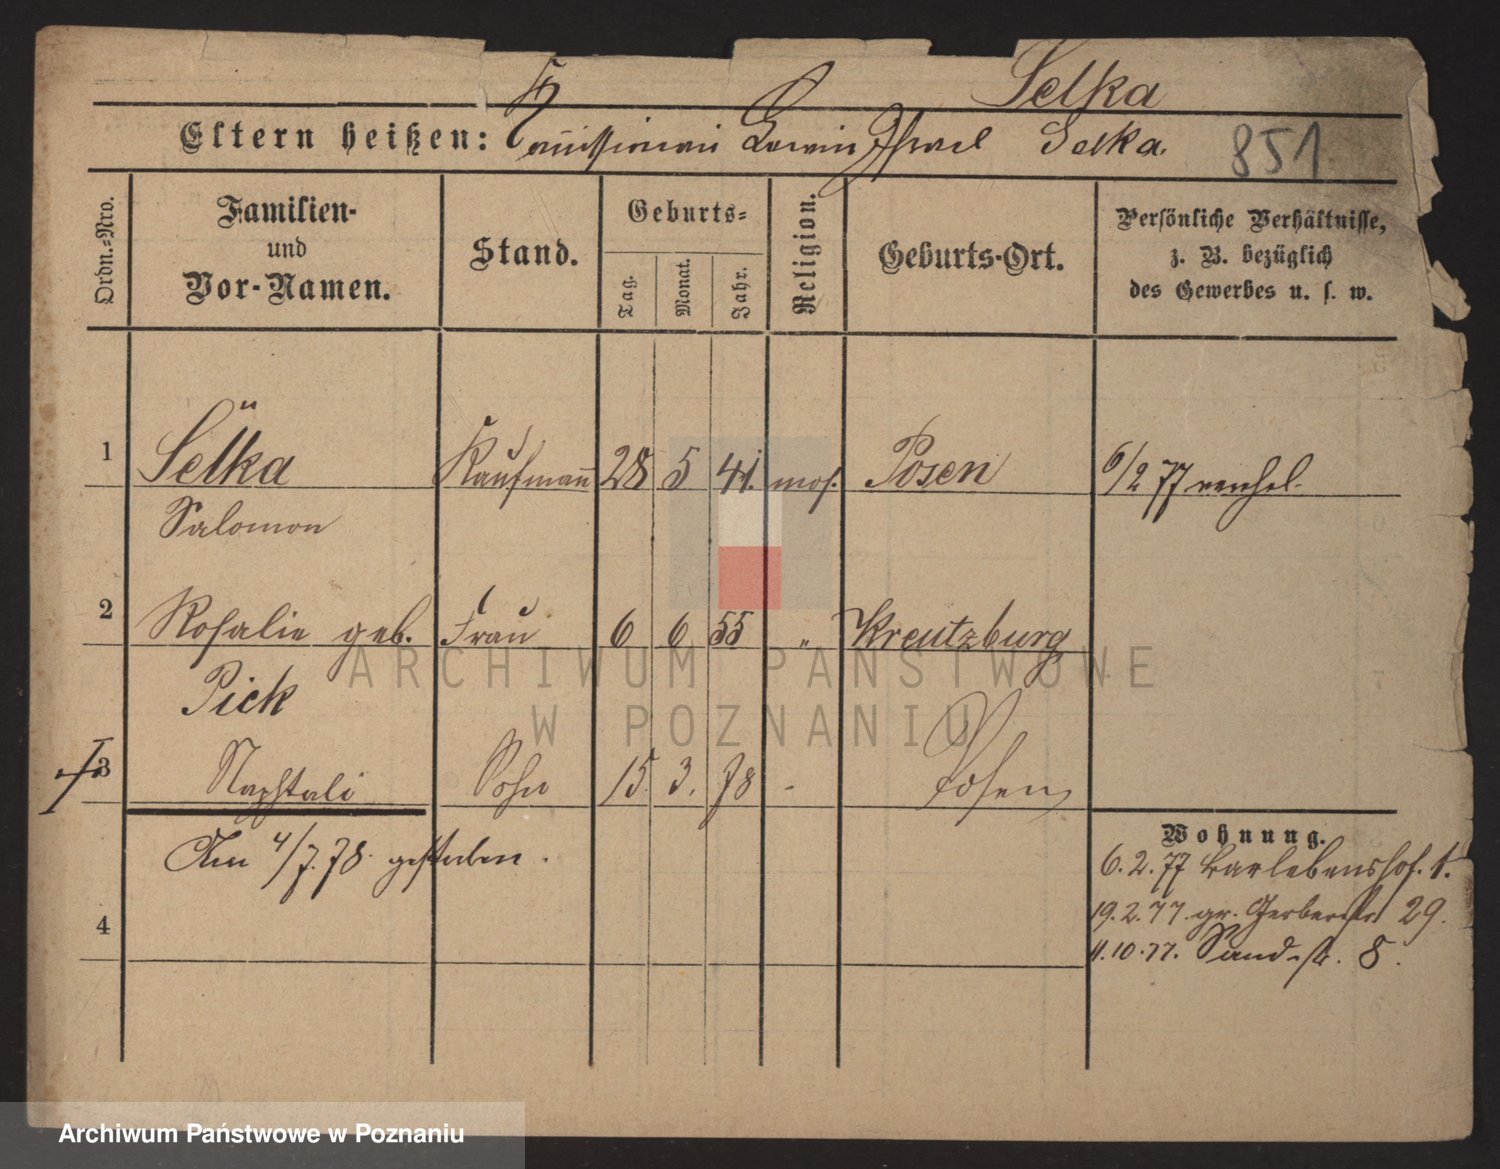 Selka
Eltern heißen: Lewin Israel Selka.
851
Ordn.-Nro.
Familien-
und
Vor-Namen.
Stand.
Geburts-
Tag.
Monat.
Jahr.
Religion.
Geburts-Ort.
Persönliche Verhältnisse,
z. B. bezüglich
des Gewerbes u. s. w.
1 Selka Kaufmann 28 5 41. mos. Posen 6/2 77
Salomon
2 Rosalie geb. Frau 6 6 55 " Kreutzburg
Pick
3 Naphtali Sohn 15. 3. 78 - Posen
Am 4/7.78. gestorben.
4
Wohnung.
6.2.77 Karlebenshof. 1.
19.2.77. gr. Gerberstr 29.
11.10.77. Sand-str. 8.
ARCHIWUM PAŃSTWOWE
W POZNANIU
Archiwum Państwowe w Poznaniu